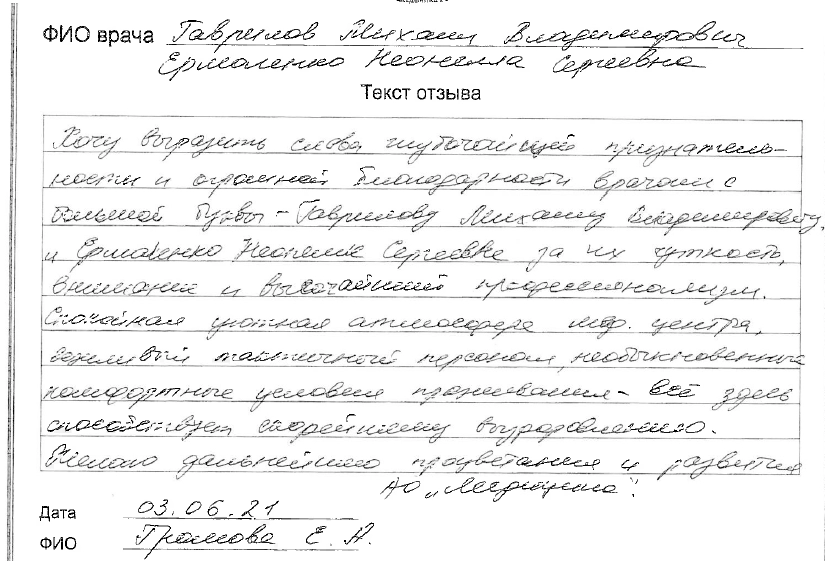 ФИО врача Гаврилов Михаил Владимирович
Ермоленко Неонилла Сергеевна
Текст отзыва
Хочу выразить слова глубочайшей признатель-
ности и огромной благодарности врачам с
большой буквы - Гаврилову Михаилу Владимировичу,
и Ермоленко Неонилле Сергеевне за их чуткость,
внимание и высочайший профессионализм.
Спокойная уютная атмосфера мед. центра,
вежливый тактичный персонал, необыкновенные
комфортные условия проживания - всё здесь
способствует скорейшему выздоровлению.
Желаю дальнейшего процветания и развития
АО "Медицина".
Дата 03.06.21
ФИО Громова Е. А.